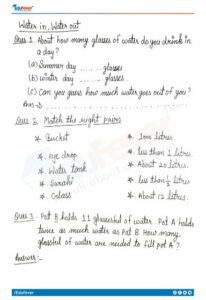 Edufever
Water in, Water out
Ques 1. About how many glasses of water do you drink in
a day?
(a) Summer day ........ glasses
(b) winter day ........ glasses.
(c) Can you guess how much water goes out of you?
Ans :-
Ques 2. Match the right pairs
* Bucket
* 1000 litres
* eye drop
* less than 1 litres.
* Water tank
* About 20 litres.
* Surahi
* less than 1/2 litres
* Glass
* About 12 litres.
Ques 3. Pot B holds 11 glassesful of water. Pot A holds
twice as much water as Pot B. How many
glassful of water are needed to fill pot A?
Answer:-
/Edufever